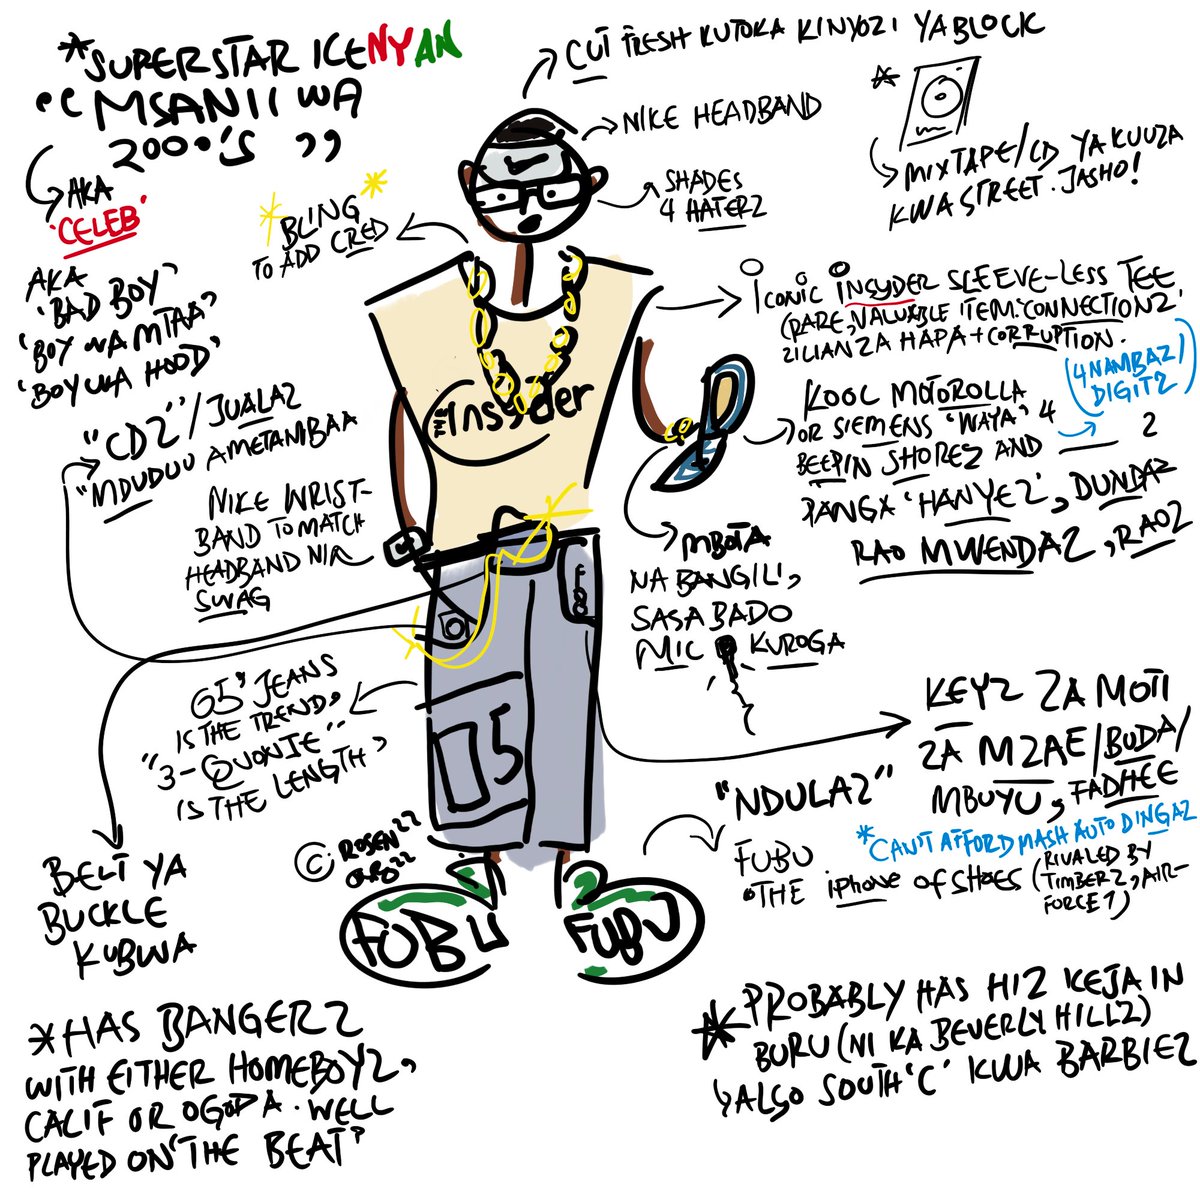 *SUPERSTAR ICENYAN
"MSANII WA
2000'S"
AKA
'CELEB'
AKA
'BAD BOY'
'BOY WA MTAA'
'BOY WA HOOD'
CUT FRESH KUTOKA KINYOZI YA BLOCK
NIKE HEADBAND
SHADES
4 HATERZ
* MIXTAPE/CD YA KUUZA
KWA STREET. JASHO!
*BLING*
TO ADD CRED
ICONIC INSYDER SLEEVE-LESS TEE
(RARE, VALUABLE ITEM. CONNECTIONZ
ZILIANZA HAPA + CORRUPTION.
(4 NAMBAZ/
DIGITZ)
KOOL MOTOROLLA
OR SIEMENS 'WAYA' 4
BEEPIN SHOREZ AND 2
PANGA 'HANYEZ', DUNDAZ
RAO MWENDAZ, RAOZ
"CDZ"/JUALAZ
"MDUDUU AMETAMBAA
THE Insyder
NIKE WRIST-
BAND TO MATCH
HEADBAND NIR
SWAG
MBOTA
NA BANGILI,
SASA BADO
MIC KUROGA
G5' JEANS
IS THE TREND,
"3-QUOXIE"
IS THE LENGTH'
FUBU
05
KEYZ ZA MOTI
ZA MZAE/BUDA/
MBUYU, FADHEE
*CAN'T AFFORD MASH AUTO DINGAZ
"NDULAZ"
FUBU
THE iPhone OF SHOES (RIVALED BY
TIMBERZ, AIR-
FORCE 1)
BELT YA
BUCKLE
KUBWA
© ROSEN
22
FUBU FUBU
*HAS BANGERZ
WITH EITHER HOMEBOYZ,
CALIF OR OGOPA. WELL
PLAYED ON 'THE BEAT'
*PROBABLY HAS HIZ KEJA IN
BURU (NI KA BEVERLY HILLZ)
ALSO SOUTH 'C' KWA BARBIEZ